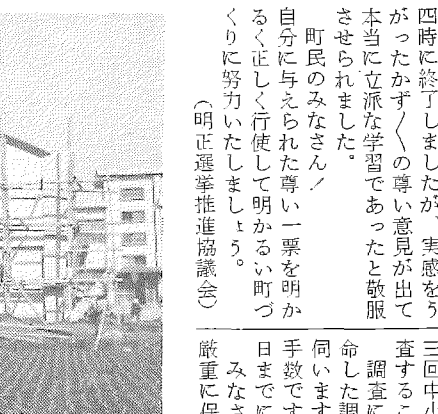 四時に終了しましたが、実感をう
がったかず〳〵の尊い意見が出て
本当に立派な学習であったと敬服
させられました。
町民のみなさん！
自分に与えられた尊い一票を明か
るく正しく行使して明かるい町づ
くりに努力いたしましょう。
（明正選挙推進協議会）
三回中小
査するこ
調査に
命した調
伺います
手数です
日までに
みなさ
厳重に保